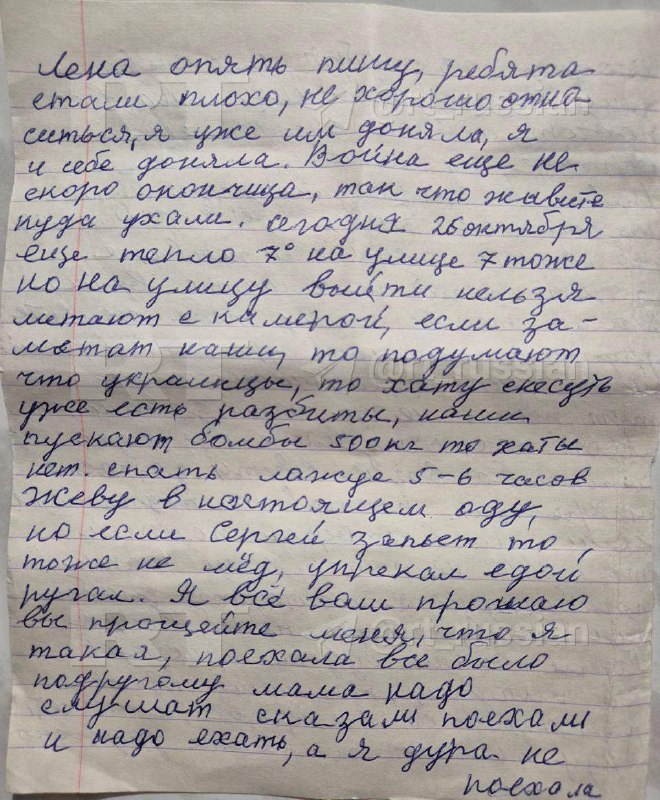 Лена опять пишу, ребята
стали плохо, не хорошо отно-
ситься, я уже им доняла, я
и себе доняла. Война еще не
скоро окончица, так что живите
куда ухали. сегодня 26 октября
еще тепло 7° на улице 7 тоже
но на улицу выйти нельзя
летают с камерой, если за-
метат наши, то подумают
что украинцы, то хату снесуть
уже есть разбиты, наши
пускают бомбы 500 кг то хаты
нет. спать ложусь 5-6 часов
Жеву в настоящем аду,
но если Сергей запьет то,
тоже не мёд, упрекал едой
ругал. Я всё вам прощаю
вы прощейте меня, что я
такая, поехала все было
подругому мама надо
слушат сказали поехали
и надо ехать, а я дура не
поехала
@rt_russian
@rt_russian
@rt_russian